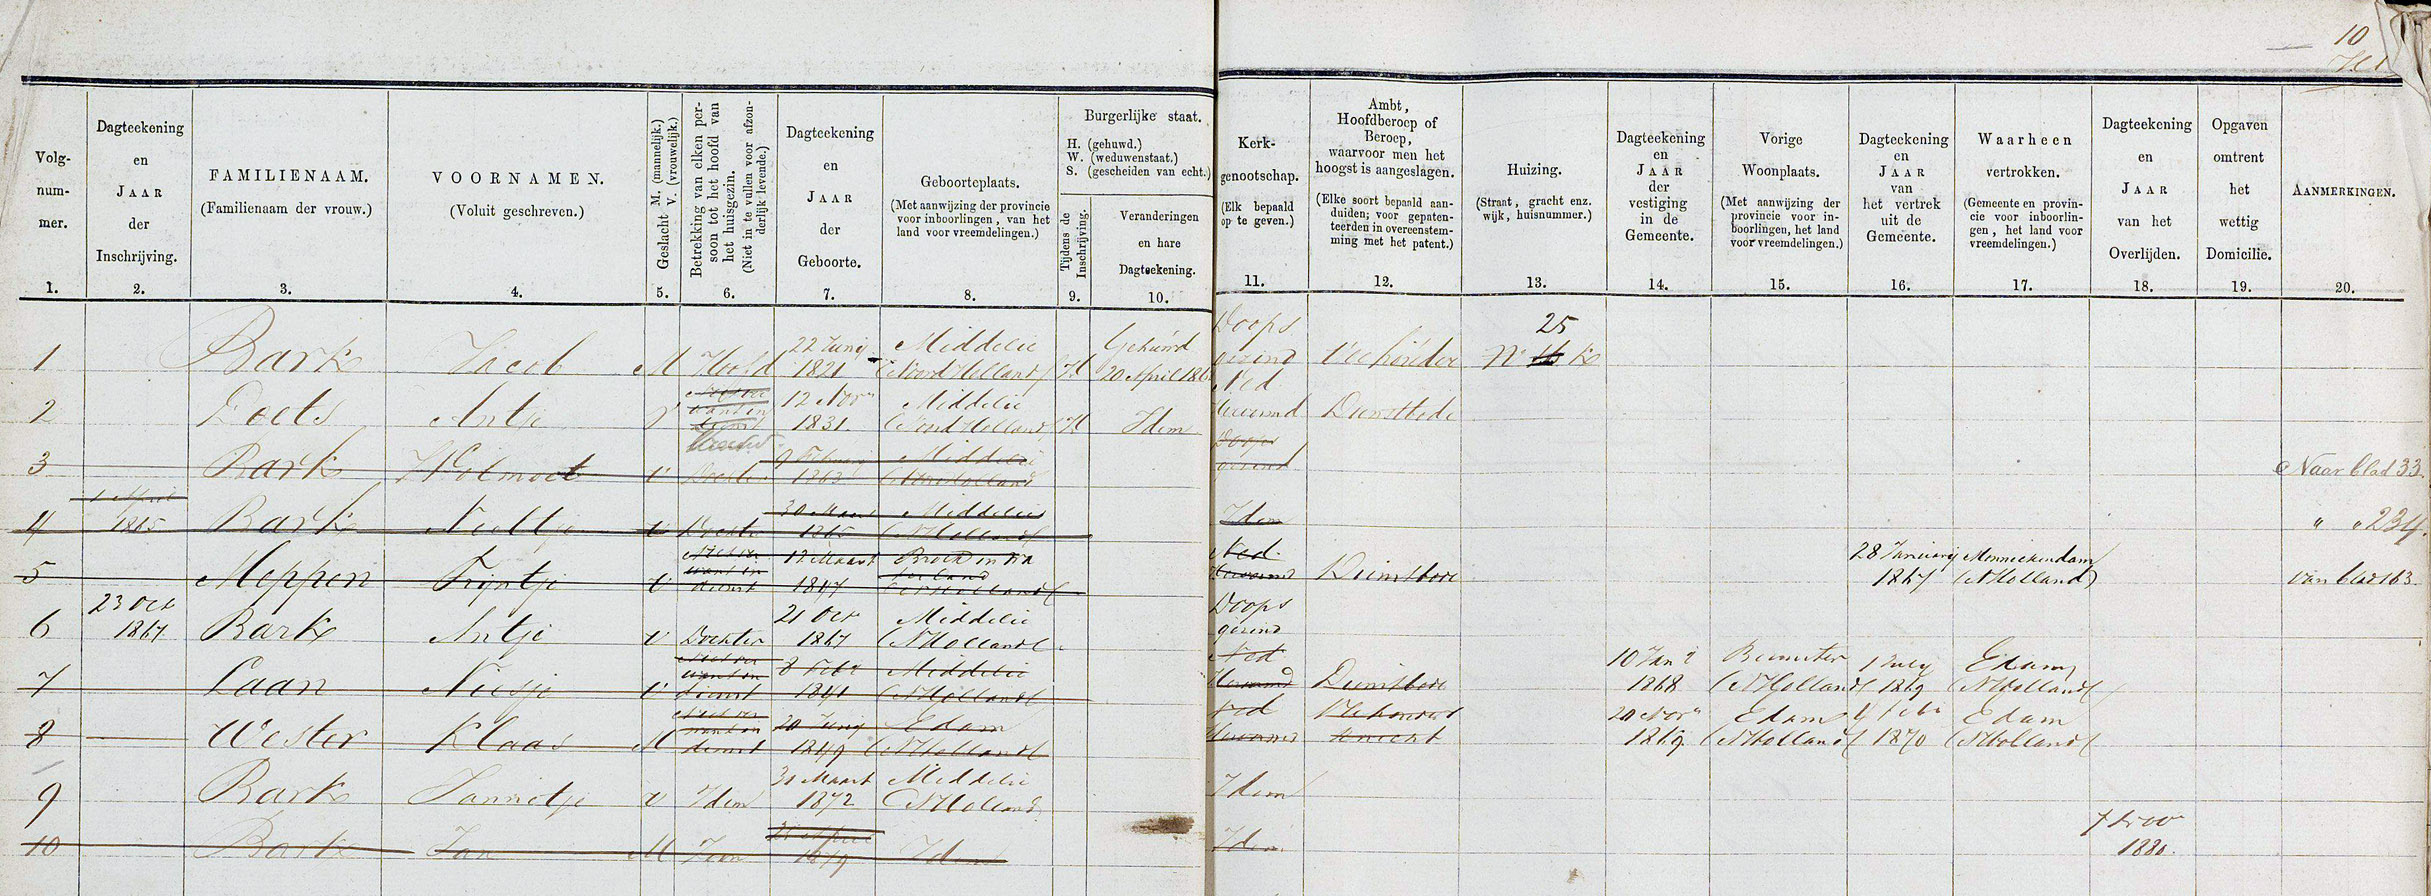 10
Volg-
num-
mer.
1.
Dagteekening
en
JAAR
der
Inschrijving.
2.
FAMILIENAAM.
(Familienaam der vrouw.)
3.
VOORNAMEN.
(Voluit geschreven.)
4.
Geslacht M. (mannelijk.)
V. (vrouwelijk.)
5.
Betrekking van elken per-
soon tot het hoofd van
het huisgezin.
(Niet in te vullen voor afzon-
derlijk levende.)
6.
Dagteekening
en
JAAR
der
Geboorte.
7.
Geboorteplaats.
(Met aanwijzing der provincie
voor inboorlingen, van het
land voor vreemdelingen.)
8.
Burgerlijke staat.
H. (gehuwd.)
W. (weduwenstaat.)
S. (gescheiden van echt.)
Tijdens de
Inschrijving.
9.
Veranderingen
en hare
Dagteekening.
10.
Kerk-
genootschap.
(Elk bepaald
op te geven.)
11.
Ambt,
Hoofdberoep of
Beroep,
waarvoor men het
hoogst is aangeslagen.
(Elke soort bepaald aan-
duiden; voor gepaten-
teerden in overeenstem-
ming met het patent.)
12.
Huizing.
(Straat, gracht enz.
wijk, huisnummer.)
13.
Dagteekening
en
JAAR
der
vestiging
in de
Gemeente.
14.
Vorige
Woonplaats.
(Met aanwijzing der
provincie voor in-
boorlingen, het land
voor vreemdelingen.)
15.
Dagteekening
en
JAAR
van
het vertrek
uit de
Gemeente.
16.
Waarheen
vertrokken.
(Gemeente en provin-
cie voor inboorlin-
gen, het land voor
vreemdelingen.)
17.
Dagteekening
en
JAAR
van het
Overlijden.
18.
Opgaven
omtrent
het
wettig
Domicilie.
19.
AANMERKINGEN.
20.
22 Junij Middelie Gehuwd Doops 25
1 Bark Jacob M Hoofd 1821 (Noord Holland) H 20 April 186 gezind Veehouder No K
Niet ver want in dienst 12 Nov Middelie Ned
2 Doets Antje V 1831 (Noord Holland) H Idem Hervormd Dienstbode
9 Middelie Doops
3 Bark Wolmoet V Dochter 1863 (N Holland) gezind Naar blad 33
1 April 30 Maart Middelie
4 1865 Bark Neeltje V Dochter 1865 (N Holland) Idem " " 234.
Niet ver want in 12 Maart Broek in Wa terland Ned. 28 Januarij Monnickendam
5 Meppen Trijntje V dienst 1847 (N Holland) Hervormd Dienstbode 1867 (N Holland) van blad 163
23 Oct 21 Oct Middelie Doops
6 1867 Bark Antje V Dochter 1867 (N Holland) gezind
Niet ver want in 8 Feb Middelie Ned 10 Jan Beemster 1 July Edam
7 Laan Niesje V dienst 1841 (N Holland) Hervormd Dienstbode 1868 (N Holland) 1869 (N Holland)
Niet ver want in 20 Junij Edam Ned Veehouders 20 Nov Edam 4 Feb Edam
8 Wester Klaas M dienst 1849 (N Holland) Hervormd knecht 1869 (N Holland) 1870 (N Holland)
31 Maart Middelie
9 Bark Jannetje V Idem 1872 (N Holland) Idem
April 7
10 Bark Jan M Zoon 1879 Idem Idem 1880.